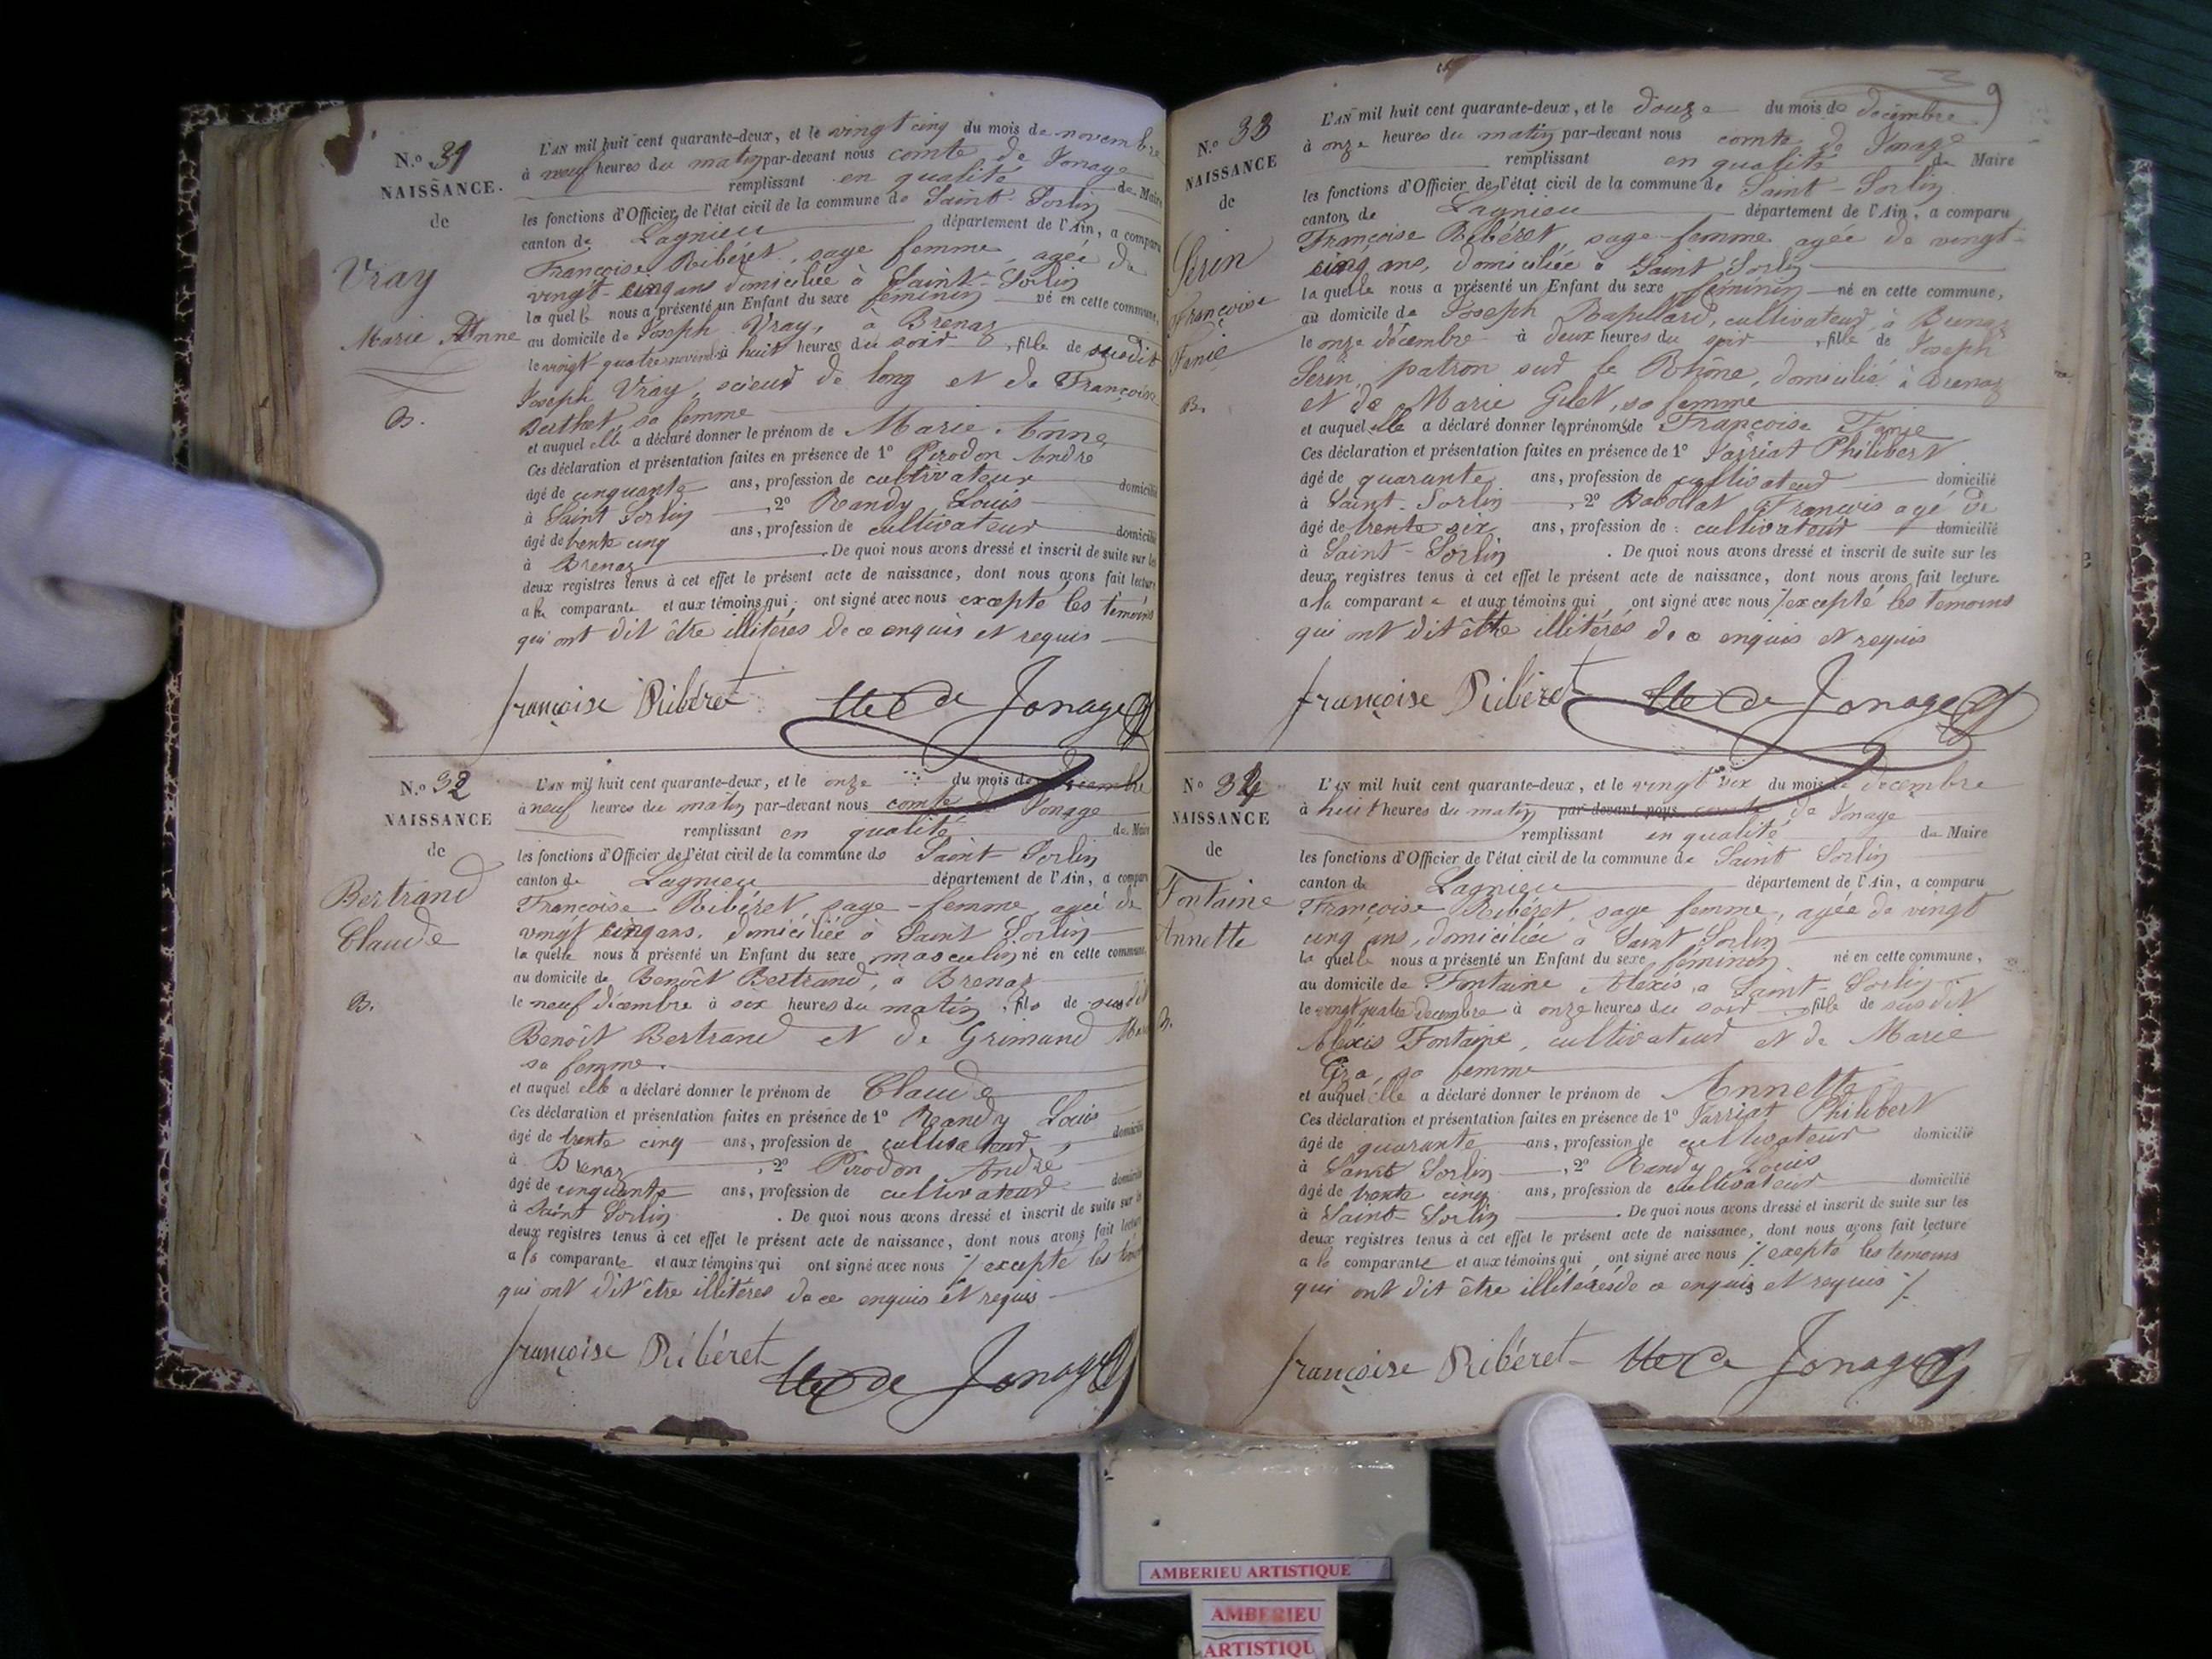 N.º 31
NAISSANCE.
de
Vray
Marie Anne
B.
L'AN mil huit cent quarante-deux, et le vingt cinq du mois de novembre
à neuf heures du matin par-devant nous comte de Jonage
remplissant en qualité de Maire
les fonctions d'Officier de l'état civil de la commune de Saint-Sorlin
canton de Lagnieu département de l'Ain, a comparu
Françoise Ribéret, sage femme, agée de
vingt-cinq ans domiciliée à Saint-Sorlin
la quelle nous a présenté un Enfant du sexe féminin né en cette commune,
au domicile de Joseph Vray, à Brenaz
le vingt-quatre novembre à huit heures du soir, fille de susdit
Joseph Vray, scieur de long et de Françoise
Berthet, sa femme
et auquel elle a déclaré donner le prénom de Marie Anne
Ces déclaration et présentation faites en présence de 1º Pirodon André
âgé de cinquante ans, profession de cultivateur domicilié
à Saint Sorlin, 2º Randy Louis
âgé de trente cinq ans, profession de cultivateur domicilié
à Brenaz. De quoi nous avons dressé et inscrit de suite sur les
deux registres tenus à cet effet le présent acte de naissance, dont nous avons fait lecture
a la comparante et aux témoins qui ont signé avec nous excepté les témoins
qui ont dit être illitérés de ce enquis et requis
françoise Ribéret Cte de Jonage
N.º 32
NAISSANCE
de
Bertrand
Claude
B.
L'AN mil huit cent quarante-deux, et le onze du mois de décembre
à neuf heures du matin par-devant nous comte de Jonage
remplissant en qualité de Maire
les fonctions d'Officier de l'état civil de la commune de Saint-Sorlin
canton de Lagnieu département de l'Ain, a comparu
Françoise Ribéret, sage-femme agée de
vingt cinq ans, domiciliée à Saint Sorlin
la quelle nous a présenté un Enfant du sexe masculin né en cette commune,
au domicile de Benoît Bertrand, à Brenaz
le neuf décembre à six heures du matin, fils de susdit
Benoît Bertrand et de Grimand
sa femme.
et auquel elle a déclaré donner le prénom de Claude
Ces déclaration et présentation faites en présence de 1º Randy Louis
âgé de trente cinq ans, profession de cultivateur, domicilié
à Brenaz, 2º Pirodon André
âgé de cinquante ans, profession de cultivateur domicilié
à Saint Sorlin. De quoi nous avons dressé et inscrit de suite sur les
deux registres tenus à cet effet le présent acte de naissance, dont nous avons fait lecture
a la comparante et aux témoins qui ont signé avec nous / excepté les témoins
qui ont dit être illitérés de ce enquis et requis
françoise Ribéret Cte de Jonage
9
N.º 33
NAISSANCE
de
Serin
Françoise
Fanie
B.
L'AN mil huit cent quarante-deux, et le douze du mois de décembre
à onze heures du matin par-devant nous comte de Jonage
remplissant en qualité de Maire
les fonctions d'Officier de l'état civil de la commune de Saint-Sorlin
canton de Lagnieu département de l'Ain, a comparu
Françoise Ribéret, sage-femme agée de vingt-
cinq ans, domiciliée à Saint Sorlin
la quelle nous a présenté un Enfant du sexe féminin né en cette commune,
au domicile de Joseph Rapillard, cultivateur, à Brenaz
le onze décembre à deux heures du soir, fille de Joseph
Serin, patron sur le Rhône, domicilié à Brenaz
et de Marie Gilet, sa femme
et auquel elle a déclaré donner les prénoms de Françoise Fanie
Ces déclaration et présentation faites en présence de 1º Jarriat Philibert
âgé de quarante ans, profession de cultivateur domicilié
à Saint-Sorlin, 2º Babollat François agé de
âgé de trente six ans, profession de : cultivateur domicilié
à Saint-Sorlin. De quoi nous avons dressé et inscrit de suite sur les
deux registres tenus à cet effet le présent acte de naissance, dont nous avons fait lecture
a la comparante et aux témoins qui ont signé avec nous / excepté les temoins
qui ont dit être illitérés de ce enquis et requis
françoise Ribéret Cte de Jonage
Nº 34
NAISSANCE
de
Fontaine
Annette
B.
L'AN mil huit cent quarante-deux, et le vingt six du mois de decembre
à huit heures du matin par-devant nous comte de Jonage
remplissant en qualité de Maire
les fonctions d'Officier de l'état civil de la commune de Saint Sorlin
canton de Lagnieu département de l'Ain, a comparu
Françoise Ribéret, sage femme, agée de vingt
cinq ans, domiciliée à Saint Sorlin
la quelle nous a présenté un Enfant du sexe féminin né en cette commune,
au domicile de Fontaine Alexis, a Saint-Sorlin
le vingt quatre decembre à onze heures du soir, fille de susdit
Alexis Fontaine, cultivateur et de Marie
sa femme
et auquel elle a déclaré donner le prénom de Annette
Ces déclaration et présentation faites en présence de 1º Jarriat Philibert
âgé de quarante ans, profession de cultivateur domicilié
à Saint Sorlin, 2º Randy Louis
âgé de trente cinq ans, profession de cultivateur domicilié
à Saint-Sorlin. De quoi nous avons dressé et inscrit de suite sur les
deux registres tenus à cet effet le présent acte de naissance, dont nous avons fait lecture
a la comparante et aux témoins qui ont signé avec nous / excepté les témoins
qui ont dit être illitérés de ce enquis et requis /.
françoise Ribéret Cte de Jonage
AMBERIEU ARTISTIQUE
AMBERIEU
ARTISTIQU